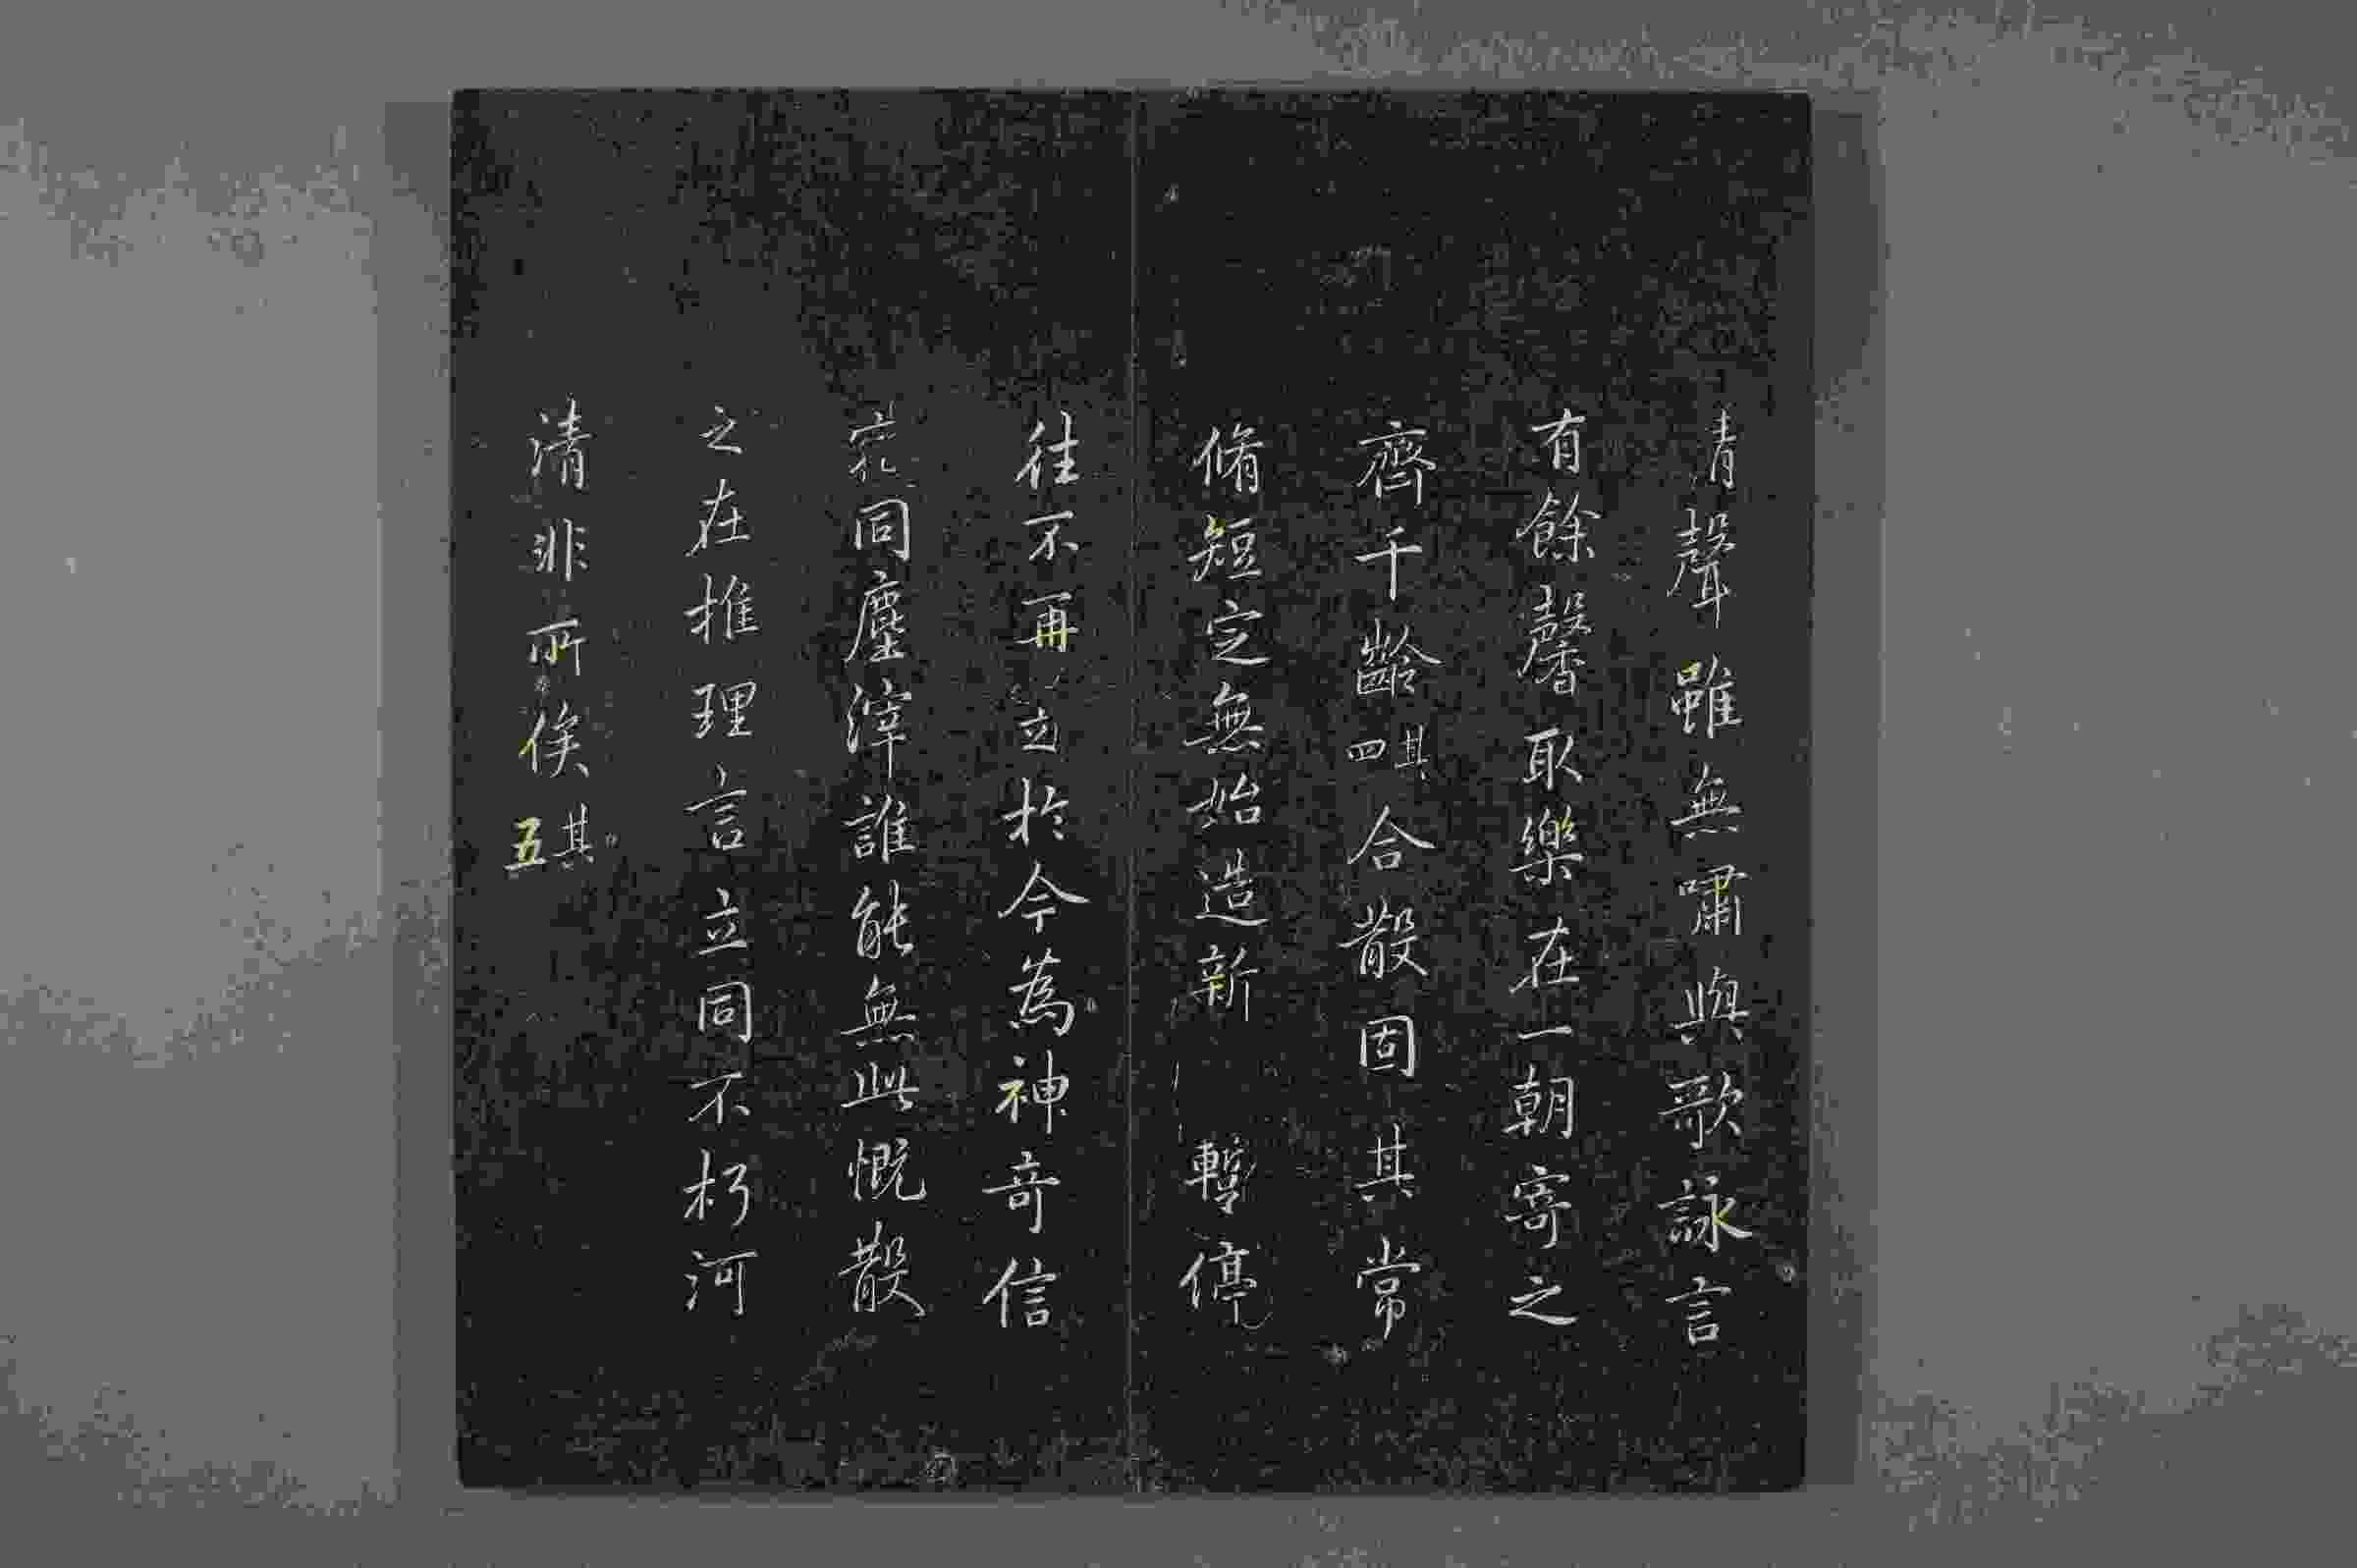 清聲雖無嘯與歌詠言
有餘馨取樂在一朝寄之
齊千齡其四合散固其常
脩短定無始造新 暫停
往不再 於今為神奇信
宿同塵滓誰能無此慨散
之在推理言立同不朽河
清非所俟其五